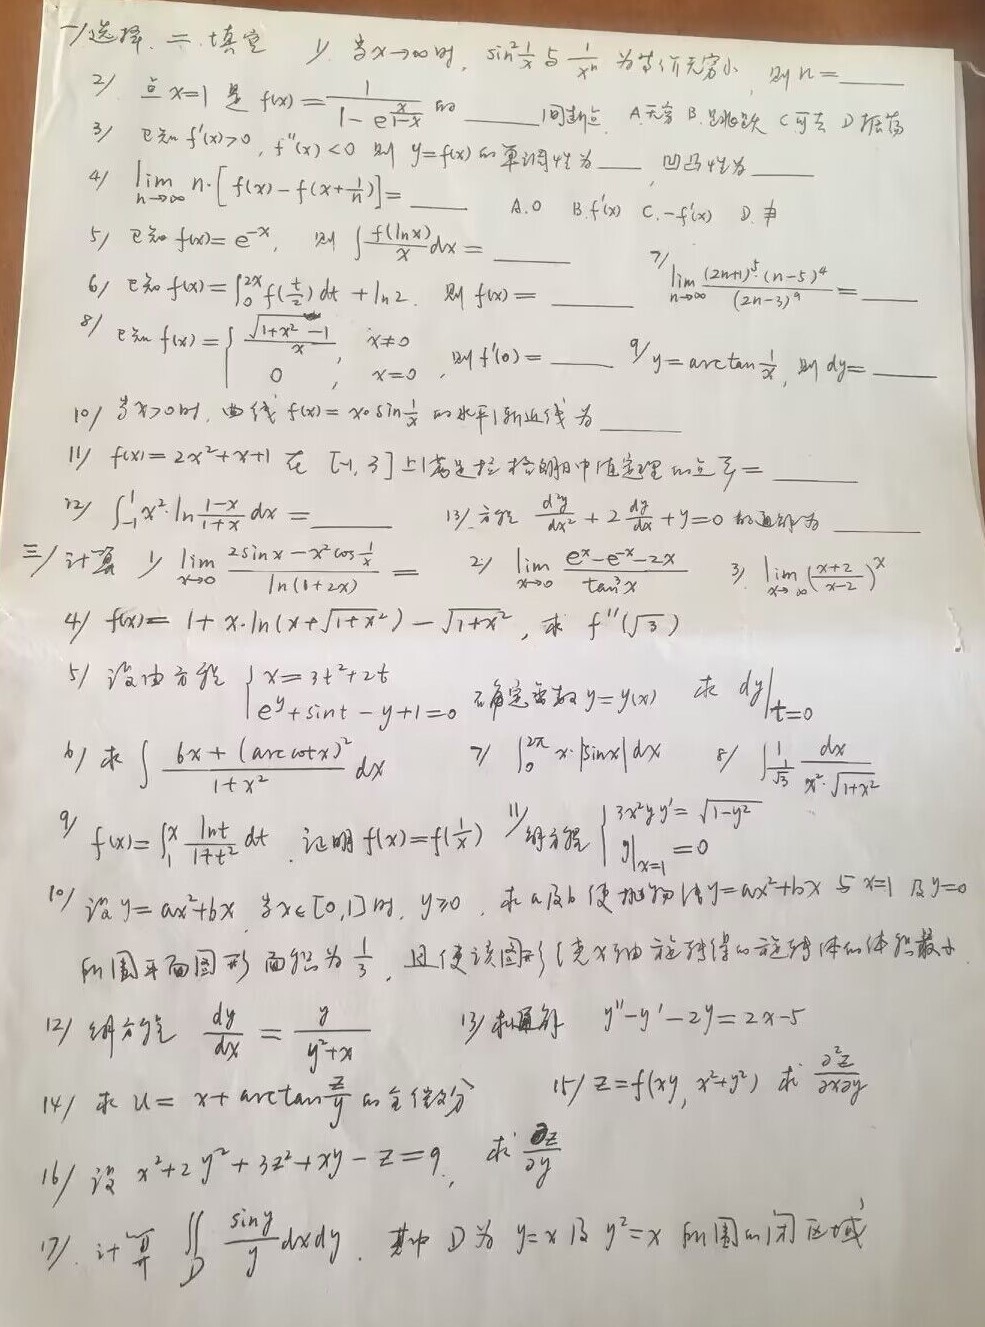 一/选择.二.填空 1/ 当x→∞时, sin²1/x 与 1/xⁿ 为等价无穷小, 则n=____
2/ 点x=1是 f(x)=1/(1-e^(x/(1-x))) 的____间断点. A.无穷 B.跳跃 C可去 D振荡
3/ 已知 f'(x)>0, f''(x)<0 则 y=f(x)的单调性为____, 凹凸性为____
4/ lim_(n→∞) n·[f(x)-f(x+1/n)]=____ A.0 B.f'(x) C.-f'(x) D.
5/ 已知 f(x)=e^(-x), 则 ∫f(lnx)/x dx=____
7/ lim_(n→∞) (2n+1)⁵·(n-5)⁴/(2n-3)⁹=____
6/ 已知 f(x)=∫₀^(2x) f(t/2)dt+ln2. 则 f(x)=____
8/ 已知 f(x)={ (√(1+x²)-1)/x, x≠0
0, x=0, 则f'(0)=____ 9/ y=arctan1/x, 则dy=____
10/ 当x>0时, 曲线 f(x)=x·sin1/x 的水平渐近线为____
11/ f(x)=2x²+x+1 在 [-1,3]上满足拉格朗日中值定理的点ξ=____
12/ ∫₋₁¹ x²·ln(1-x)/(1+x) dx=____ 13/ 方程 d²y/dx²+2dy/dx+y=0 的通解为____
三/计算 1/ lim_(x→0) (2sinx-x²cos1/x)/ln(1+2x)= 2/ lim_(x→0) (e^x-e^(-x)-2x)/tan³x 3/ lim_(x→∞) ((x+2)/(x-2))^x
4/ f(x)=1+x·ln(x+√(1+x²))-√(1+x²), 求 f''(√3)
5/ 设由方程 { x=3t²+2t
e^y+sint-y+1=0 确定函数y=y(x) 求 dy|_(t=0)
6/ 求 ∫(6x+(arccotx)²)/(1+x²) dx 7/ ∫₀^(2π) x·|sinx|dx 8/ ∫_(1/√3)^1 dx/(x²·√(1+x²))
9/ f(x)=∫₁^x lnt/(1+t²) dt. 证明f(x)=f(1/x) 11/ 解方程 { 3x²yy'=√(1-y²)
y|_(x=1)=0
10/ 设y=ax²+bx, 当x∈[0,1]时, y≥0, 求a及b使抛物线y=ax²+bx与x=1及y=0
所围平面图形面积为1/3, 且使该图形绕x轴旋转得的旋转体的体积最小
12/ 解方程 dy/dx=y/(y²+x) 13/ 求通解 y''-y'-2y=2x-5
14/ 求 u=x+arctan z/y 的全微分 15/ z=f(xy, x²+y²) 求 ∂²z/∂x∂y
16/ 设 x²+2y²+3z²+xy-z=9, 求 ∂z/∂y
17/. 计算 ∬_D siny/y dxdy. 其中 D为 y=x及y²=x 所围的闭区域